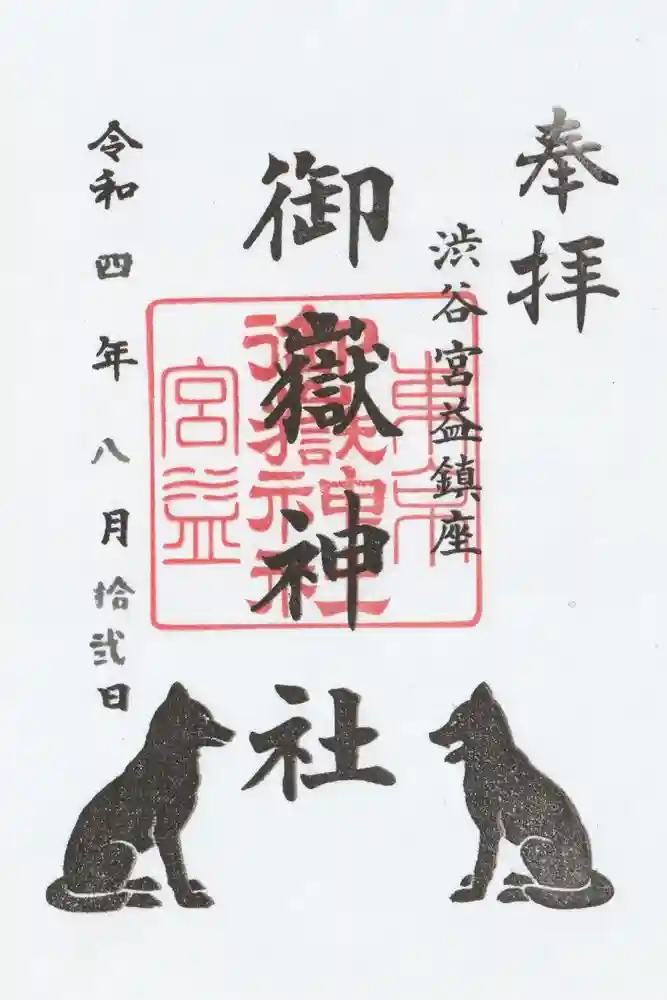 奉拝
渋谷宮益鎮座
御嶽神社
東京
御嶽神社
宮益
令和四年八月拾弐日